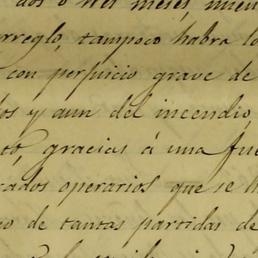 dos ó tres meses, nuev
rreglo, tampoco habra lo
con perjuicio grave de
os y aun del incendio,
tó, gracias á una fue
cados operarios que se h
o de tantas partidas de